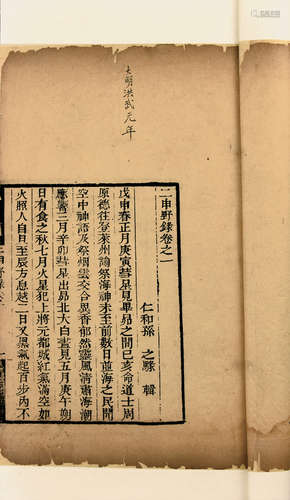 大明洪武元年
二申野錄卷之一
仁和孫 之騄 輯
戊申春正月庚寅彗星見畢昴之間己亥命道士周
原德往登萊州諭祭海神未至前數日並海之民聞
空中神語及祭烟雲交合異香郁然靈風清肅海潮
應響三月辛卯彗星出昴北大白晝見五月庚午朔
日有食之秋七月火星犯上將元都城紅氣滿空如
火照人自旦至辰方息越二日又黑氣起百步內不